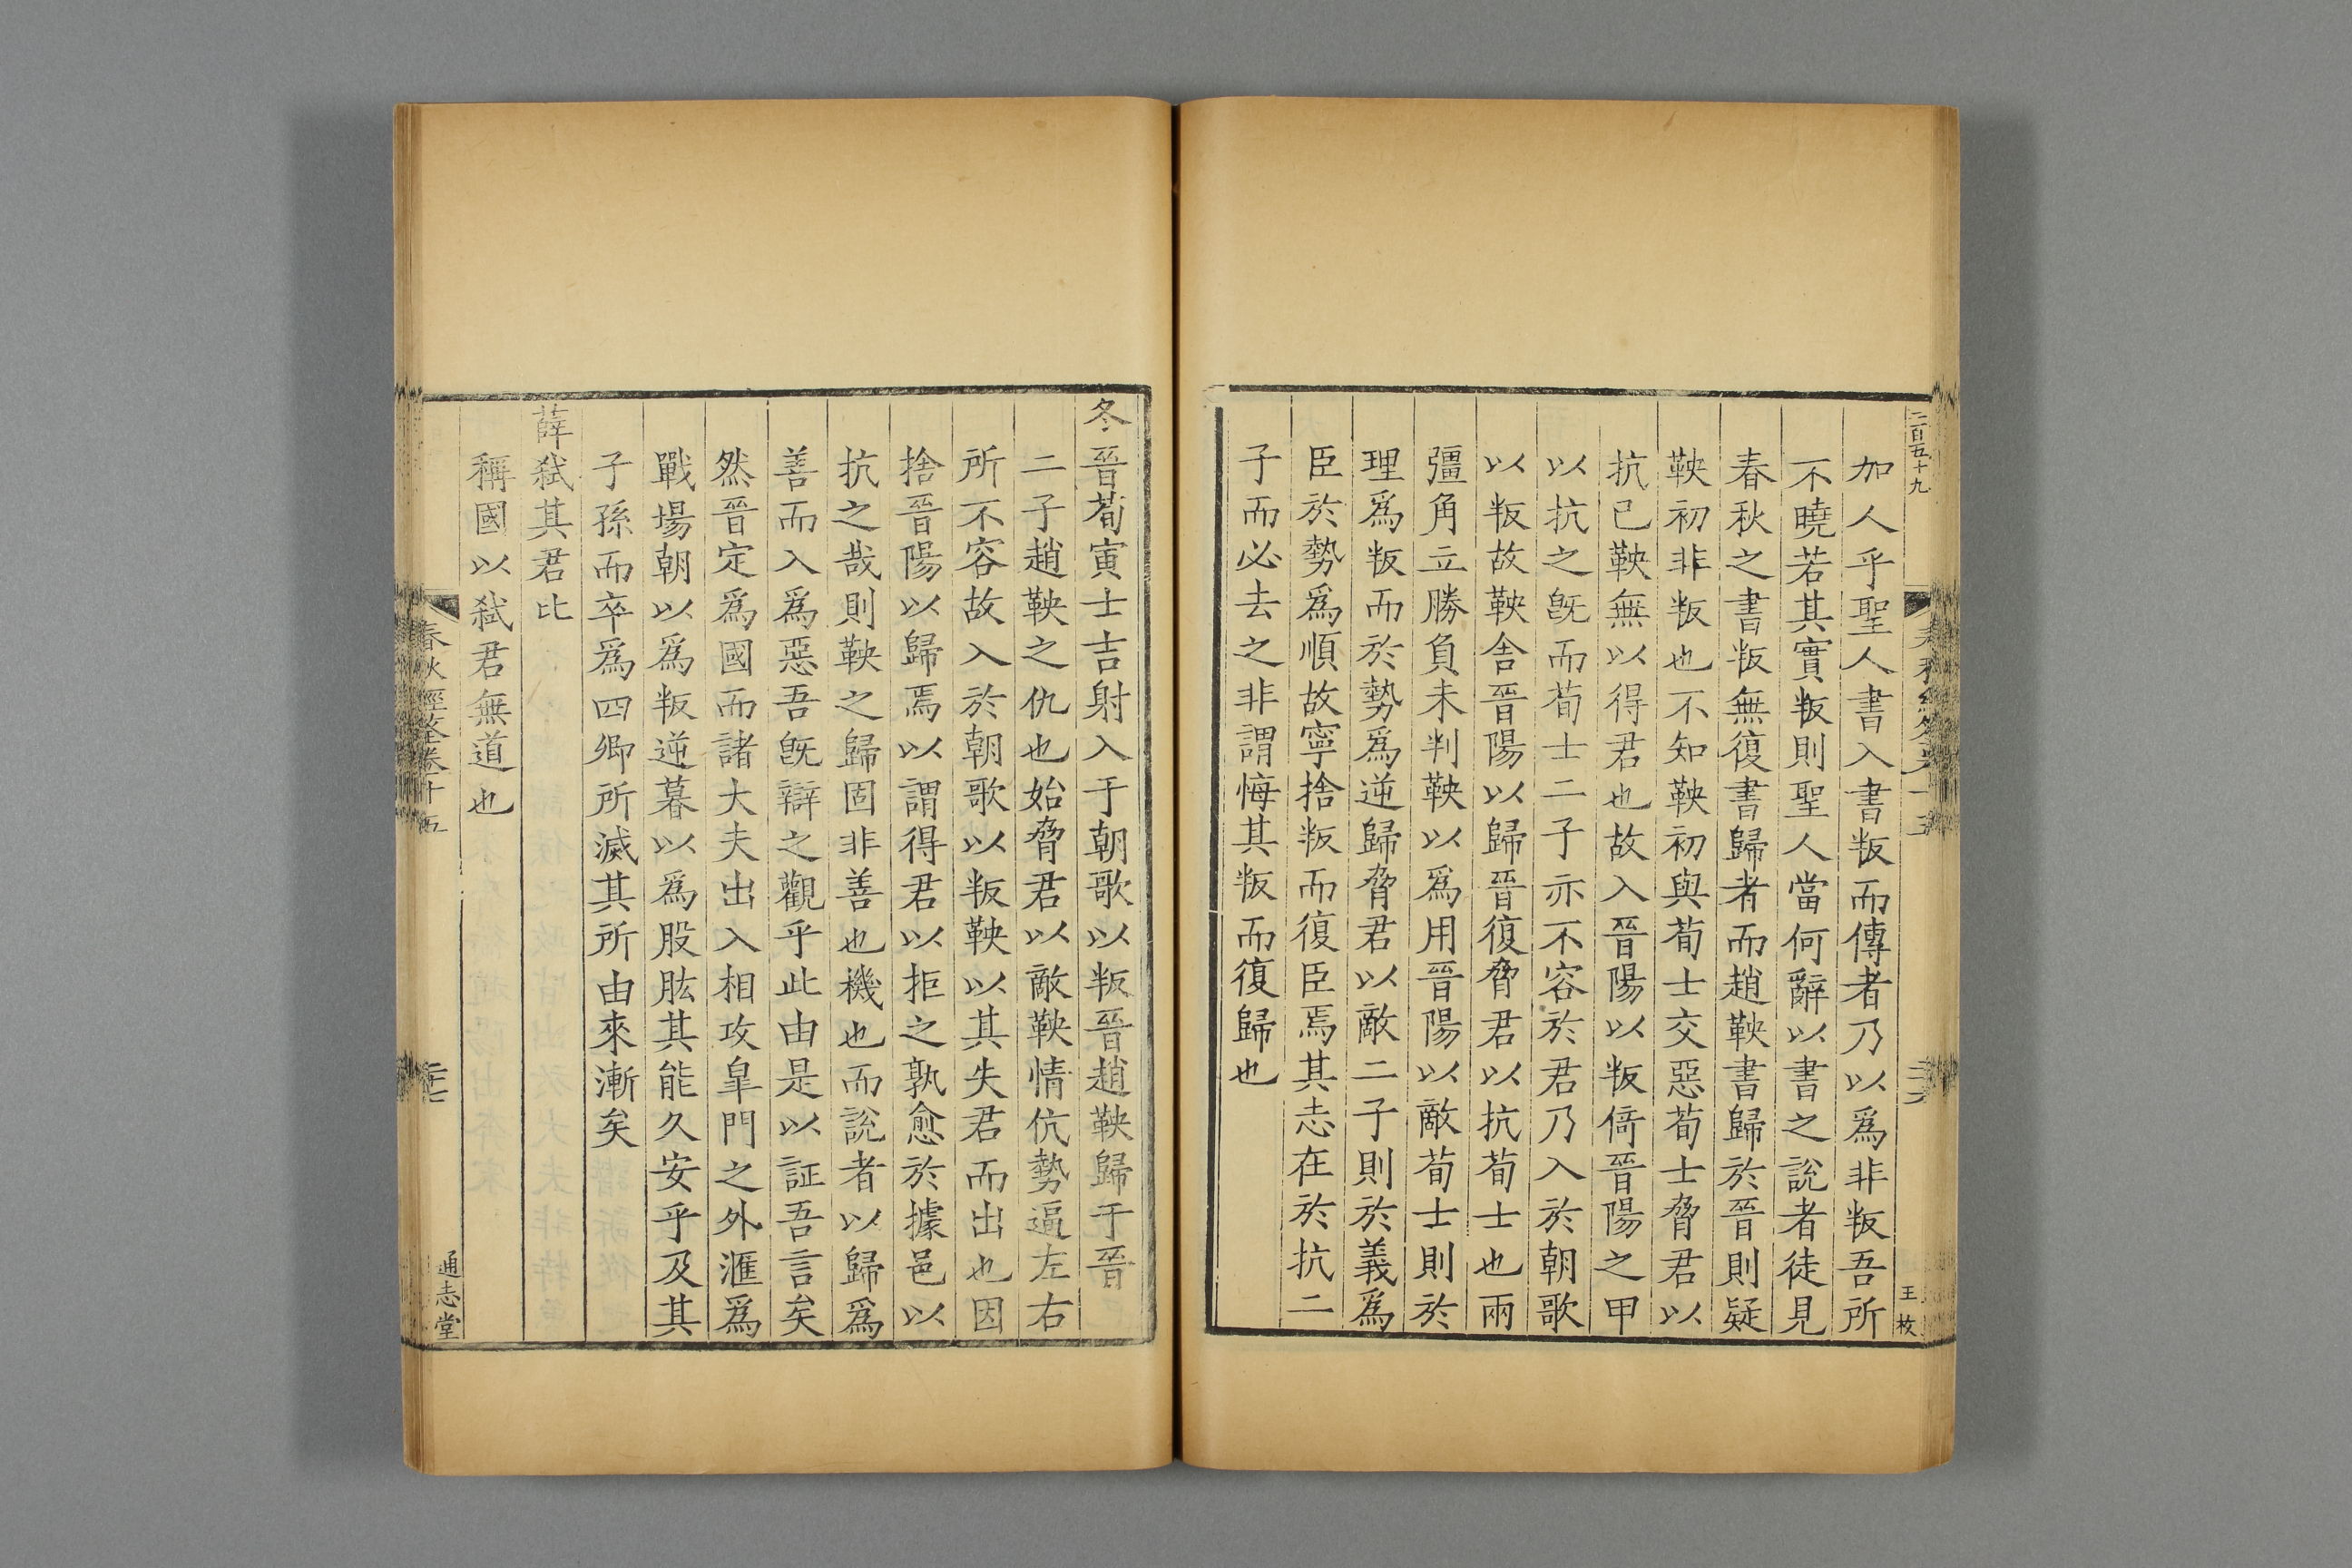 二百五十九
加人乎聖人書入書叛而傳者乃以爲非叛吾所
不曉若其實叛則聖人當何辭以書之說者徒見
春秋之書叛無復書歸者而趙鞅書歸於晉則疑
鞅初非叛也不知鞅初與荀士交惡荀士脅君以
抗已鞅無以得君也故入晉陽以叛倚晉陽之甲
以抗之旣而荀士二子亦不容於君乃入於朝歌
以叛故鞅舍晉陽以歸晉復脅君以抗荀士也兩
彊角立勝負未判鞅以爲用晉陽以敵荀士則於
理爲叛而於勢爲逆歸脅君以敵二子則於義爲
臣於勢爲順故寧捨叛而復臣焉其志在於抗二
子而必去之非謂悔其叛而復歸也
王枚
冬晉荀寅士吉射入于朝歌以叛晉趙鞅歸于晉
二子趙鞅之仇也始脅君以敵鞅情伉勢逼左右
所不容故入於朝歌以叛鞅以其失君而出也因
捨晉陽以歸焉以謂得君以拒之孰愈於據邑以
抗之哉則鞅之歸固非善也機也而說者以歸爲
善而入爲惡吾旣辯之觀乎此由是以証吾言矣
然晉定爲國而諸大夫出入相攻皐門之外滙爲
戰場朝以爲叛逆暮以爲股肱其能久安乎及其
子孫而卒爲四卿所滅其所由來漸矣
薛弑其君比
稱國以弑君無道也
春秋經筌卷十五
二十七
通志堂